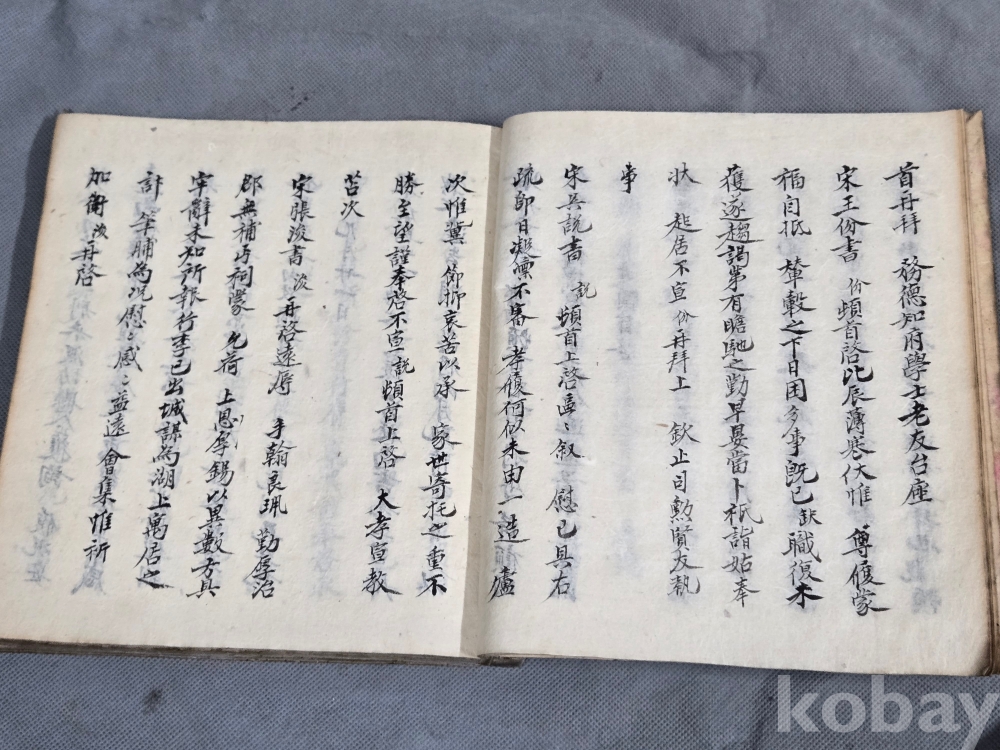 首再拜 務德知府學士老友台座
宋王份書 份頓首啓比辰薄寒伏惟 尊履蒙
福自抵 輦轂之下日困多事旣已 缺 職復未
獲遂趨謁第有瞻馳之勤早晏當卜祇詣姑奉
狀 起居不宣份再拜上 欽止司勲賢友執
事
宋吳說書 說 頓首上啓區〻叙 慰已具右
疏卽日凝凜不審 孝履何似未由一造 廬
次惟冀 節抑哀苦以承 家世寄托之重不
勝至望謹奉啓不宣 說頓首上啓 大孝宣敎
苫次
宋張浚書 浚 再啓遠辱 手翰良珮 勤厚治
郡無補丐祠蒙 允荷 上恩厚錫以異數方具
牢辭未知所報行李已出城謀爲湖上寓居之
計 羊脯爲况慰〻感〻益遠 會集惟祈
加衛 浚再啓
kobay